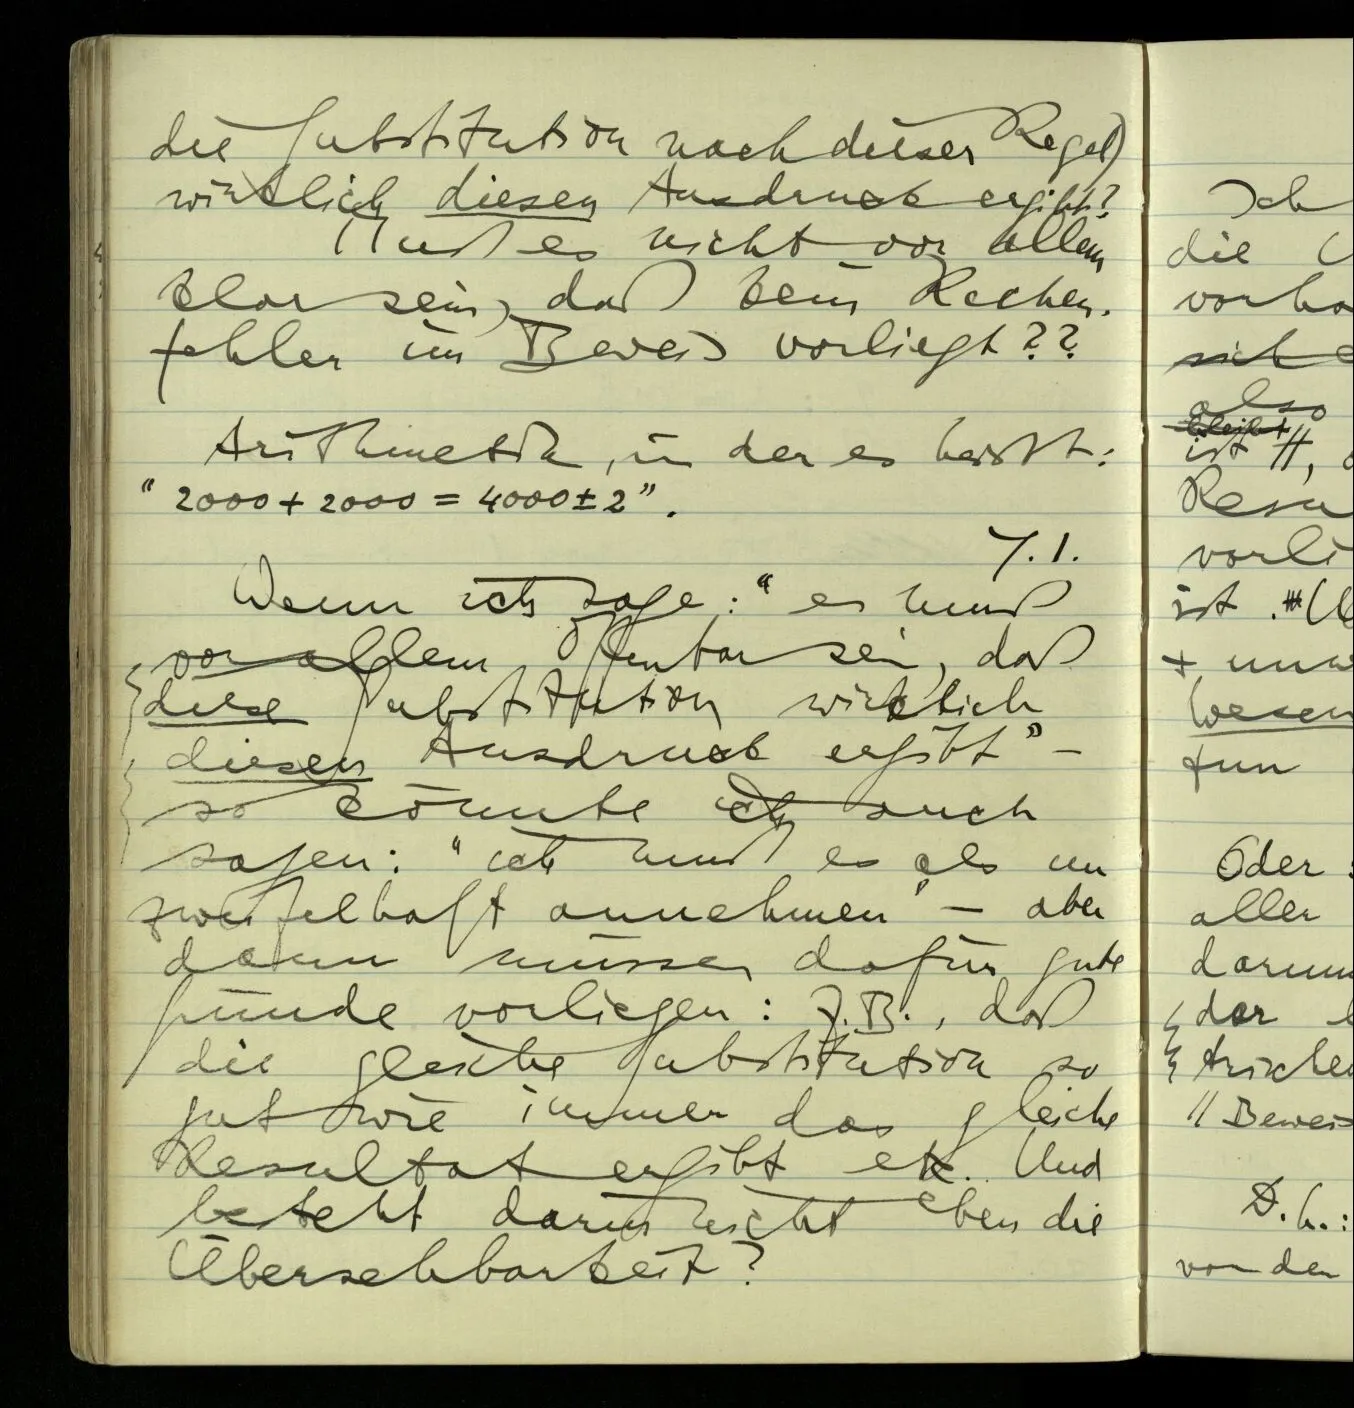 die Substitution nach dieser Regel)
wirklich diesen Ausdruck ergibt?
Muß es nicht vor allem
klar sein, daß kein Rechen-
fehler im Beweis vorliegt??
Arithmetik, in der es heißt:
"2000 + 2000 = 4000 ± 2".
7.1.
Wenn ich sage: "es muß
vor allem offenbar sein, daß
diese Substitution wirklich
diesen Ausdruck ergibt" –
so könnte ich auch
sagen: "ich muß es als un
zweifelhaft annehmen" – aber
dann müssen dafür gute
Gründe vorliegen: Z.B., daß
die gleiche Substitution so
gut wie immer das gleiche
Resultat ergibt etc. Und
besteht darin nicht eben die
Übersehbarkeit?
Ich
die
vorha
also
ist //,
Resu
vorli
ist.
+ unw
Wesen
tun
Oder:
aller
darum
der
trischen
// Beweis
D.h.:
von den